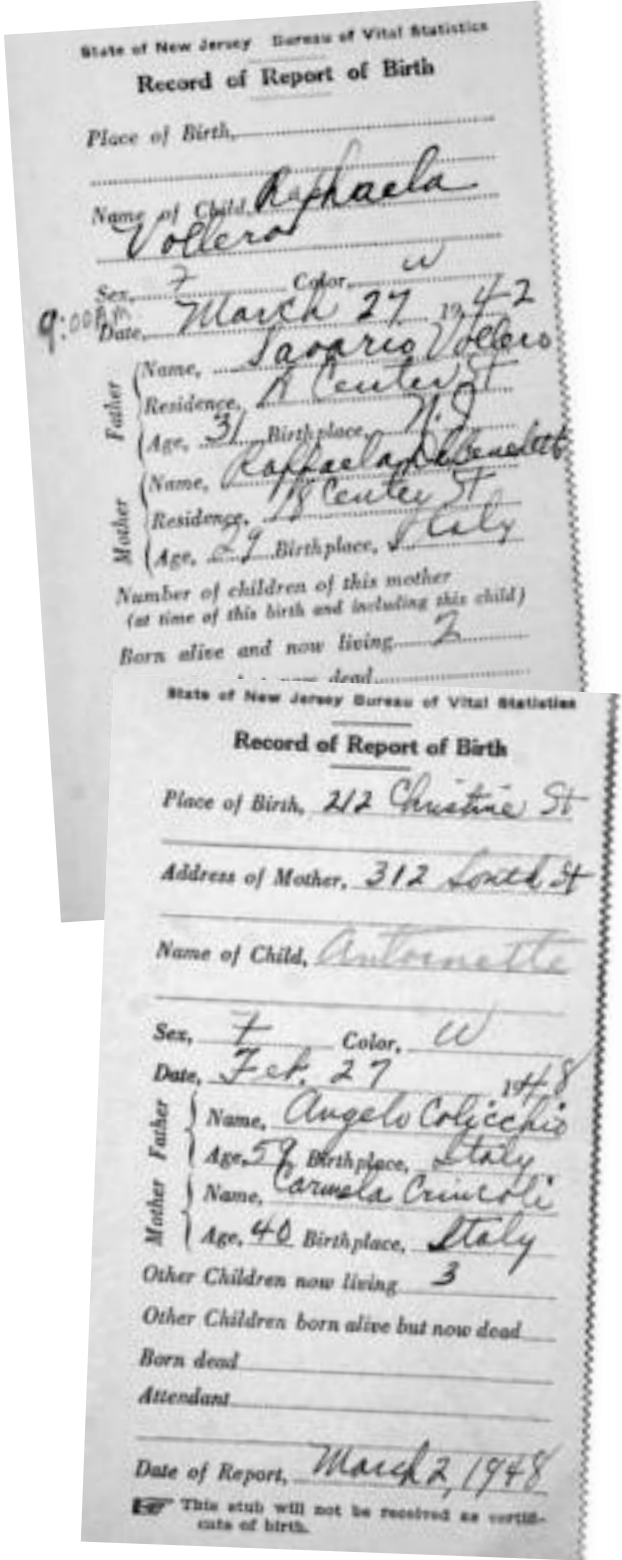 State of New Jersey Bureau of Vital Statistics
Record of Report of Birth
Place of Birth,
Name of Child, Raphaela
Vollero
Sex, F Color, W
9:00 Date, March 27 1942
Father
Name, Savario Vollero
Residence, Center St
Age, 31 Birthplace, N.J
Mother
Name, Raffaela
Residence, 18 Center St
Age, 29 Birthplace, Italy
Number of children of this mother
(at time of this birth and including this child)
Born alive and now living 2
but now dead
State of New Jersey Bureau of Vital Statistics
Record of Report of Birth
Place of Birth, 212 Christine St
Address of Mother, 312 South St
Name of Child, Antoinette
Sex, F Color, W
Date, Feb. 27 1948
Father
Name, Angelo Colicchio
Age, 59 Birthplace, Italy
Mother
Name, Carmela Crincoli
Age, 40 Birthplace, Italy
Other Children now living 3
Other Children born alive but now dead
Born dead
Attendant
Date of Report, March 2, 1948
This stub will not be received as certifi-
cate of birth.